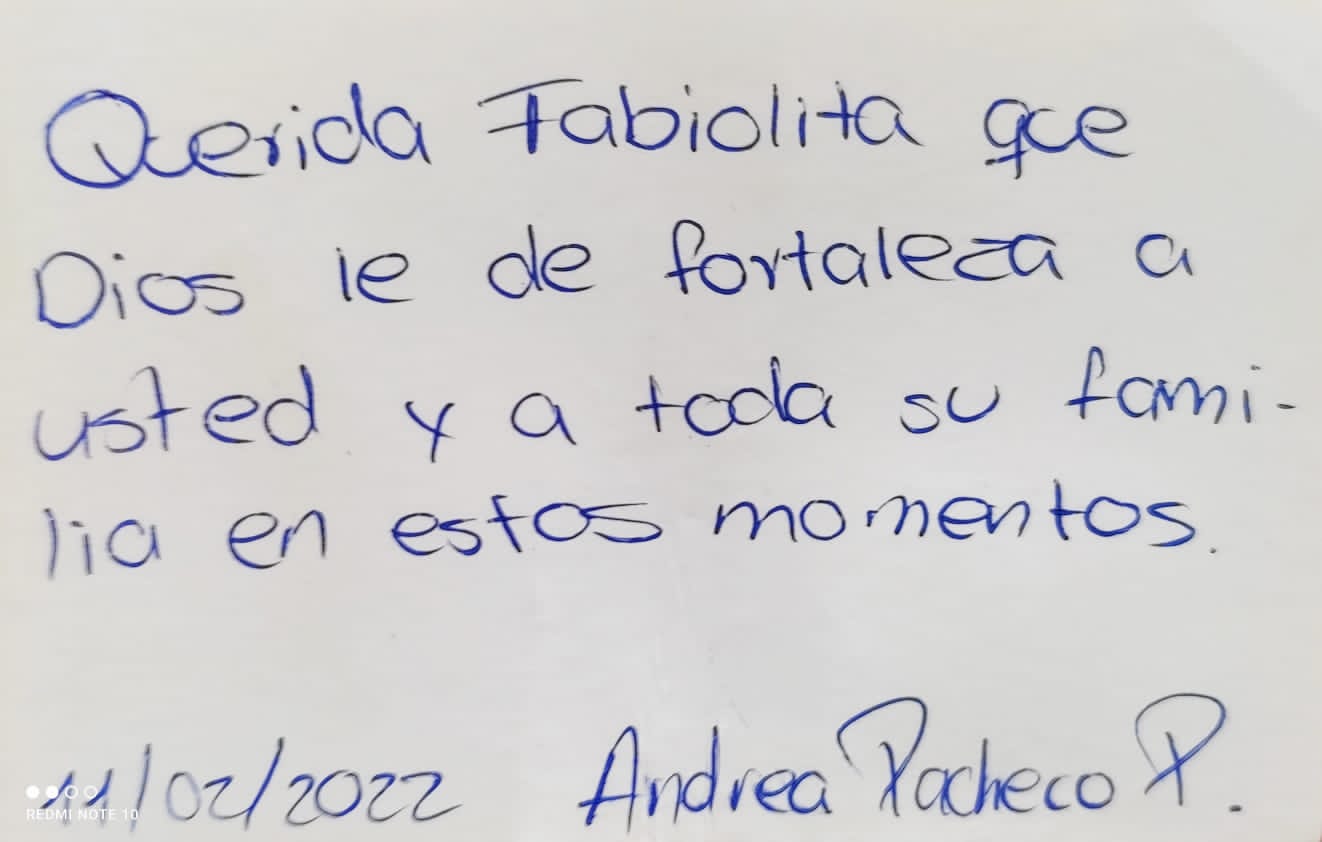 Querida Fabiolita que
Dios le de fortaleza a
usted y a toda su fami-
lia en estos momentos.
11/02/2022 Andrea Pacheco P.
REDMI NOTE 10